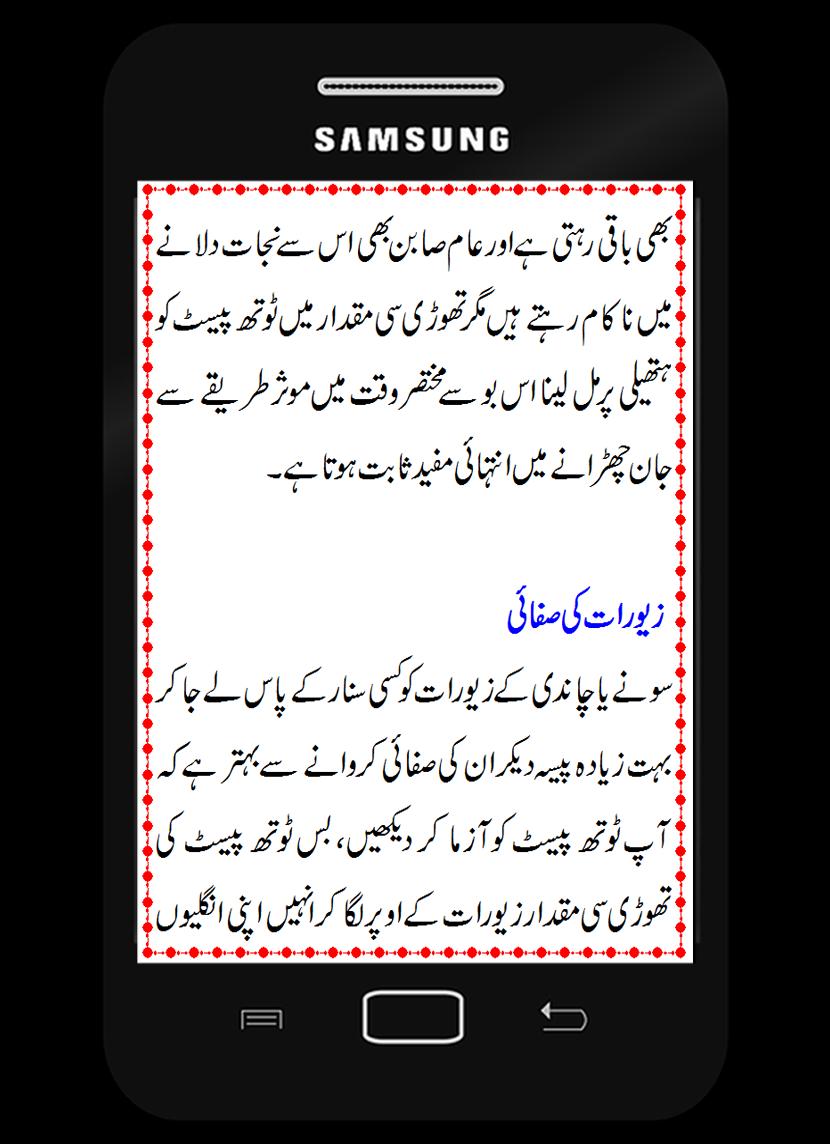 SAMSUNG
بھی باقی رہتی ہے اور عام صابن بھی اس سے نجات دلانے
میں ناکام رہتے ہیں مگر تھوڑی سی مقدار میں ٹوتھ پیسٹ کو
ہتھیلی پر مل لینا اس بو سے مختصر وقت میں موثر طریقے سے
جان چھڑانے میں انتہائی مفید ثابت ہوتا ہے۔
زیورات کی صفائی
سونے یا چاندی کے زیورات کو کسی سنار کے پاس لے جا کر
بہت زیادہ پیسہ دیکر ان کی صفائی کروانے سے بہتر ہے کہ
آپ ٹوتھ پیسٹ کو آزما کر دیکھیں، بس ٹوتھ پیسٹ کی
تھوڑی سی مقدار زیورات کے اوپر لگا کر انہیں اپنی انگلیوں